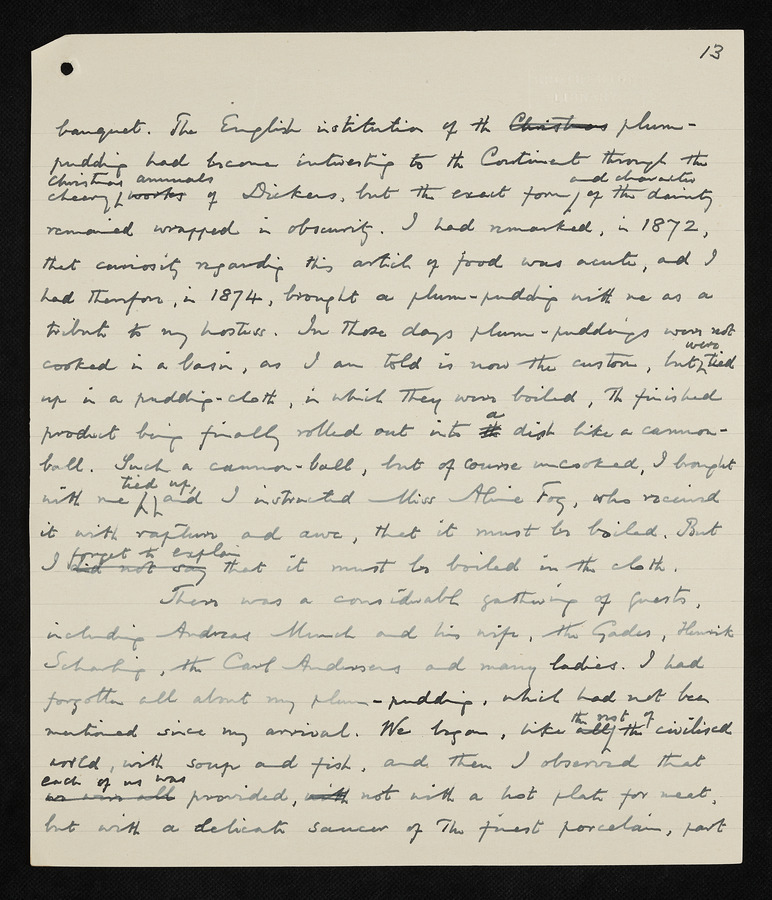 13
banquet. The English institution of the Christmas plum-
pudding had become interesting to the Continent through the
Christmas annuals and character
cheery works of Dickens, but the exact form of the dainty
remained wrapped in obscurity. I had remarked, in 1872,
that curiosity regarding this article of food was acute, and I
had therefore, in 1874, brought a plum-pudding with me as a
tribute to my hostess. In those days plum-puddings were not
were
cooked in a basin, as I am told is now the custom, but tied
up in a pudding-cloth, in which they were boiled, the finished
a
product being finally rolled out into the dish like a cannon-
ball. Such a cannon-ball, but of course uncooked, I brought
tied up,
with me, and I instructed Miss Aline Fog, who received
it with rapture and awe, that it must be boiled. But
forgot to explain
I did not say that it must be boiled in the cloth.
There was a considerable gathering of guests,
including Andreas Munch and his wife, the Gades, Henrik
Scharling, the Carl Andersens and many ladies. I had
forgotten all about my plum-pudding, which had not been
the rest of
mentioned since my arrival. We began, like all the civilised
world, with soup and fish, and then I observed that
each of us was
we were all provided, with not with a hot plate for meat,
but with a delicate saucer of the finest porcelain, part